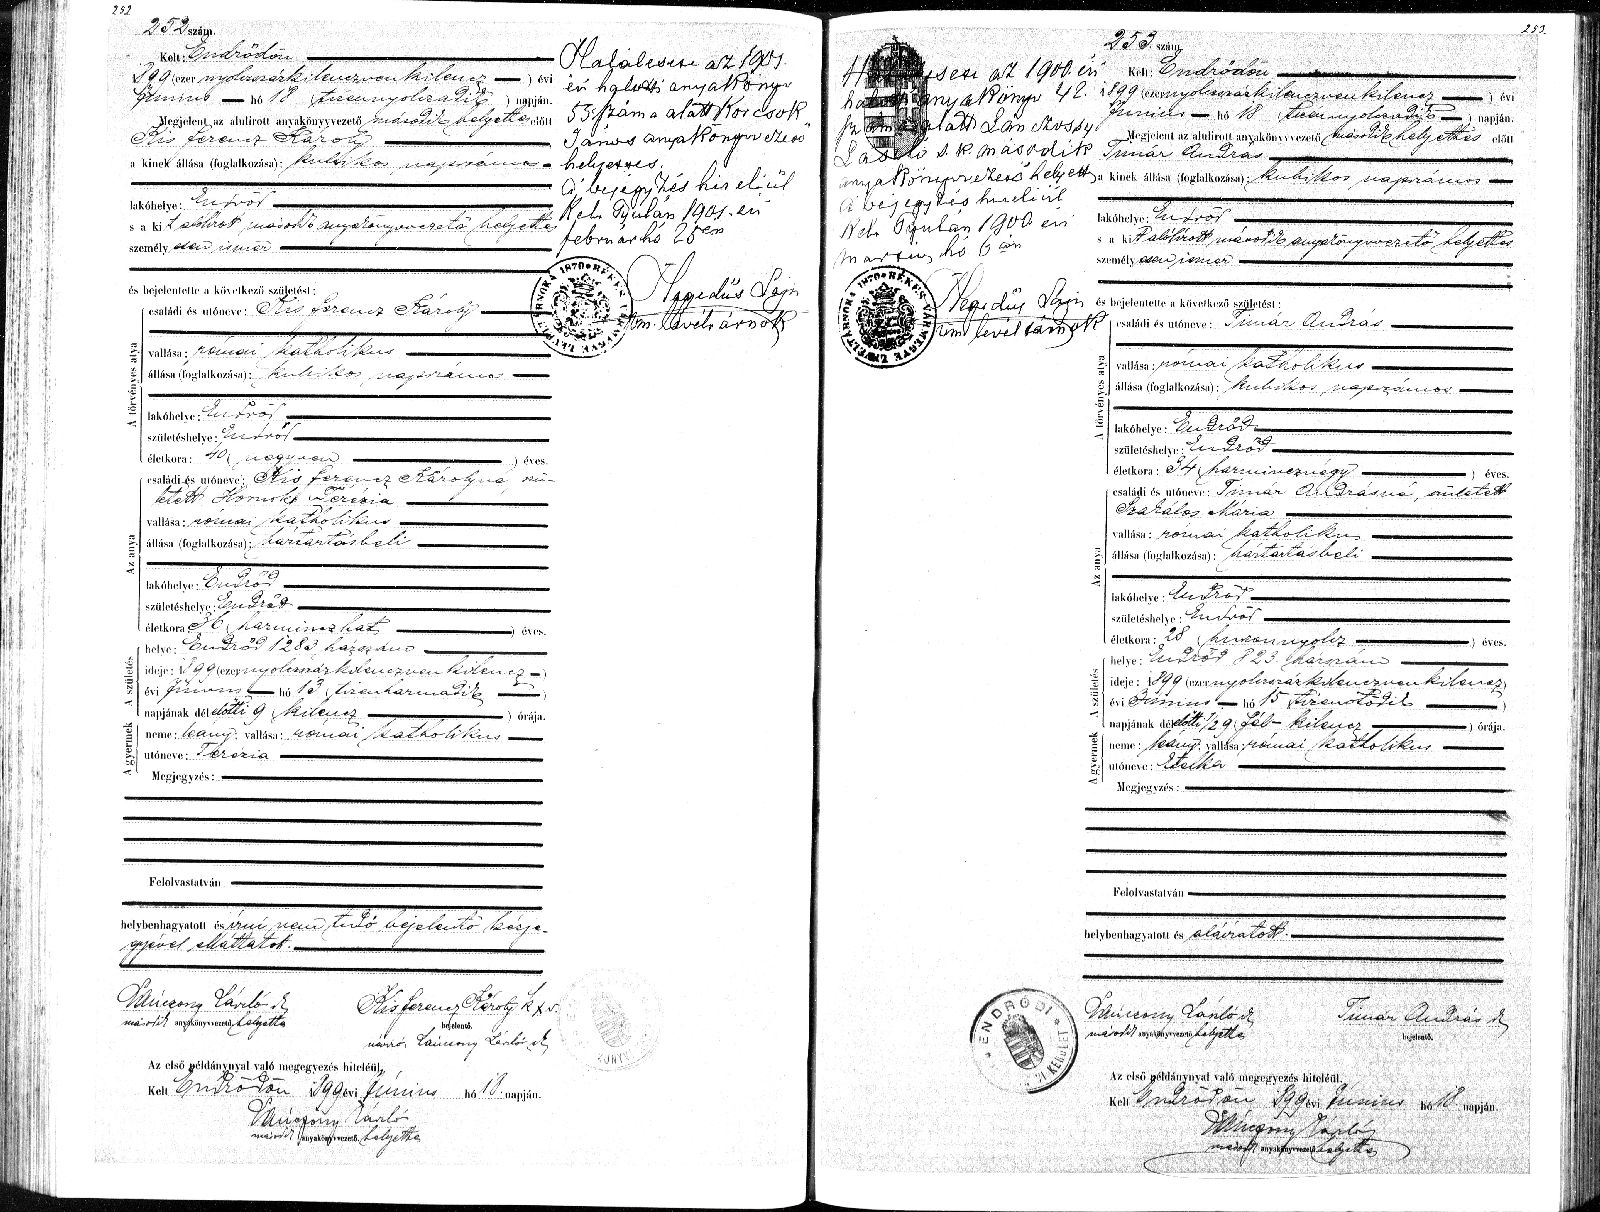 252
252 szám.
Kelt: Endrődön
899 (ezer nyolcszázkilenczvenkilencz ) évi
Június hó 18 (tizennyolczadik) napján.
Megjelent az alulirott anyakönyvvezető második helyettes előtt
Kis Ferencz Károly
a kinek állása (foglalkozása): kubikos napszámos
lakóhelye: Endrőd
s a kit alólirott második anyakönyvvezető helyettes
személyesen ismer
és bejelentette a következő születést:
A törvényes atya
családi és utóneve: Kis Ferencz Károly
vallása: római katholikus
állása (foglalkozása): kubikos napszámos
lakóhelye: Endrőd
születéshelye: Endrőd
életkora: 40 (negyven ) éves.
Az anya
családi és utóneve: Kis Ferencz Károlyné, szü-
letett Homoki Terézia
vallása: római katholikus
állása (foglalkozása): háztartásbeli
lakóhelye: Endrőd
születéshelye: Endrőd
életkora 36 (harminczhat ) éves.
A születés
helye: Endrőd 1283 házszám
ideje: 1899 (ezernyolczszázkilenczvenkilencz )
évi Június hó 13 (tizenharmadik )
napjának délelőtti 9 (kilencz ) órája.
A gyermek
neme: leány; vallása: római katholikus
utóneve: Terézia
Megjegyzés:
Felolvastatván
helybenhagyatott és írni nem tudó bejelentő kézje-
gyével elláttatott.
László sk
második anyakönyvvezető helyettes
Kis Ferencz Károly k x v.
bejelentő.
László sk
Az első példánynyal való megegyezés hiteléül.
Kelt Endrődön 1899 évi Június hó 18. napján.
László
második anyakönyvvezető helyettes
Halálesete az 1901.
évi halotti anyakönyv
55. száma alatt Korcsok
János anyakönyvvezető
helyettes.
A bejegyzés hiteléül
Kelt Gyulán 1901. évi
február hó 25 én
Hegedüs Lajos
vm. levéltárnok
BÉKÉS VÁRMEGYE LEVÉLTÁRNOKA 1870
253
253. szám.
Kelt: Endrődön
1899 (ezernyolczszázkilenczvenkilencz ) évi
Június hó 18 (tizennyolczadik ) napján.
Megjelent az alulirott anyakönyvvezető második helyettes előtt
Timár András
a kinek állása (foglalkozása): kubikos napszámos
lakóhelye: Endrőd
s a kit alólírott második anyakönyvvezető helyettes
személyesen ismer
és bejelentette a következő születést:
A törvényes atya
családi és utóneve: Timár András
vallása: római katholikus
állása (foglalkozása): kubikos napszámos
lakóhelye: Endrőd
születéshelye: Endrőd
életkora: 34 (harmincznégy ) éves.
Az anya
családi és utóneve: Timár Andrásné, született
Szakálos Mária
vallása: római katholikus
állása (foglalkozása): háztartásbeli
lakóhelye: Endrőd
születéshelye: Endrőd
életkora: 28 (huszonnyolcz ) éves.
A születés
helye: Endrőd 823 házszám
ideje: 1899 (ezernyolczszázkilenczvenkilencz)
évi Június hó 15 (tizenötödik )
napjának délelőtti 1/2 9 (fél kilencz ) órája.
A gyermek
neme: leány; vallása: római katholikus
utóneve: Etelka
Megjegyzés:
Felolvastatván
helybenhagyatott és aláíratott.
László sk
második anyakönyvvezető helyettes
Timár András sk
bejelentő.
Az első példánynyal való megegyezés hiteléül.
Kelt Endrődön 1899 évi Június hó 18 napján.
László
második anyakönyvvezető helyettes
Halálesete az 1900. évi
halotti anyakönyv 42.
szám alatt
László s. k. második
anyakönyvvezető helyettes
A bejegyzés hiteléül
Kelt Gyulán 1900 évi
március hó 6 án
Hegedüs Lajos
vm. levéltárnok
BÉKÉS VÁRMEGYE LEVÉLTÁRNOKA 1870
ENDRŐDI